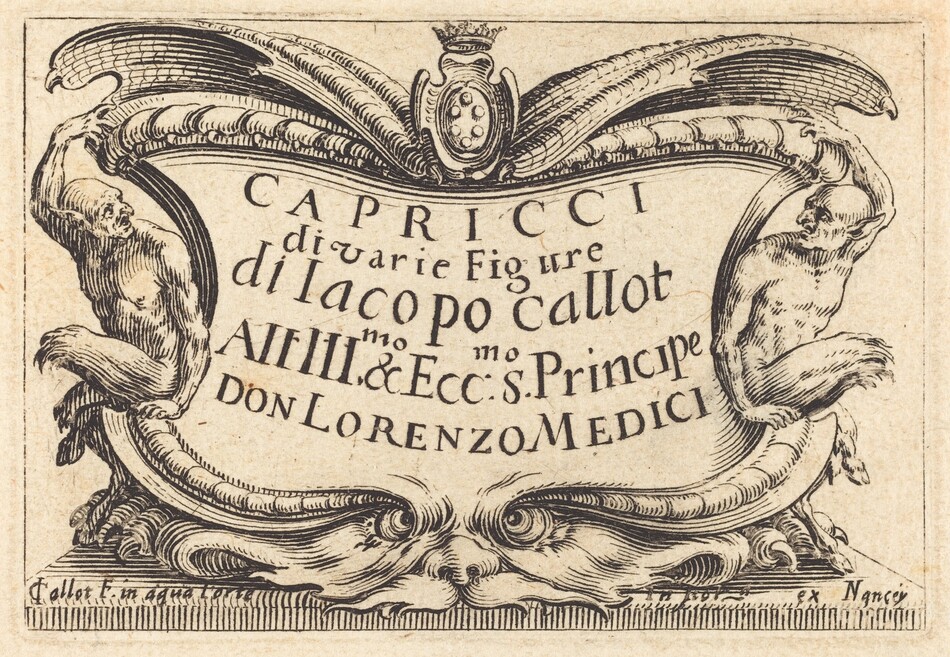 CAPRICCI
di varie Figure
di Iacopo Callot
All Ill.mo & Ecc:mo S. Principe
DON LORENZO MEDICI
Callot F. in aqua forte
ex Nançey